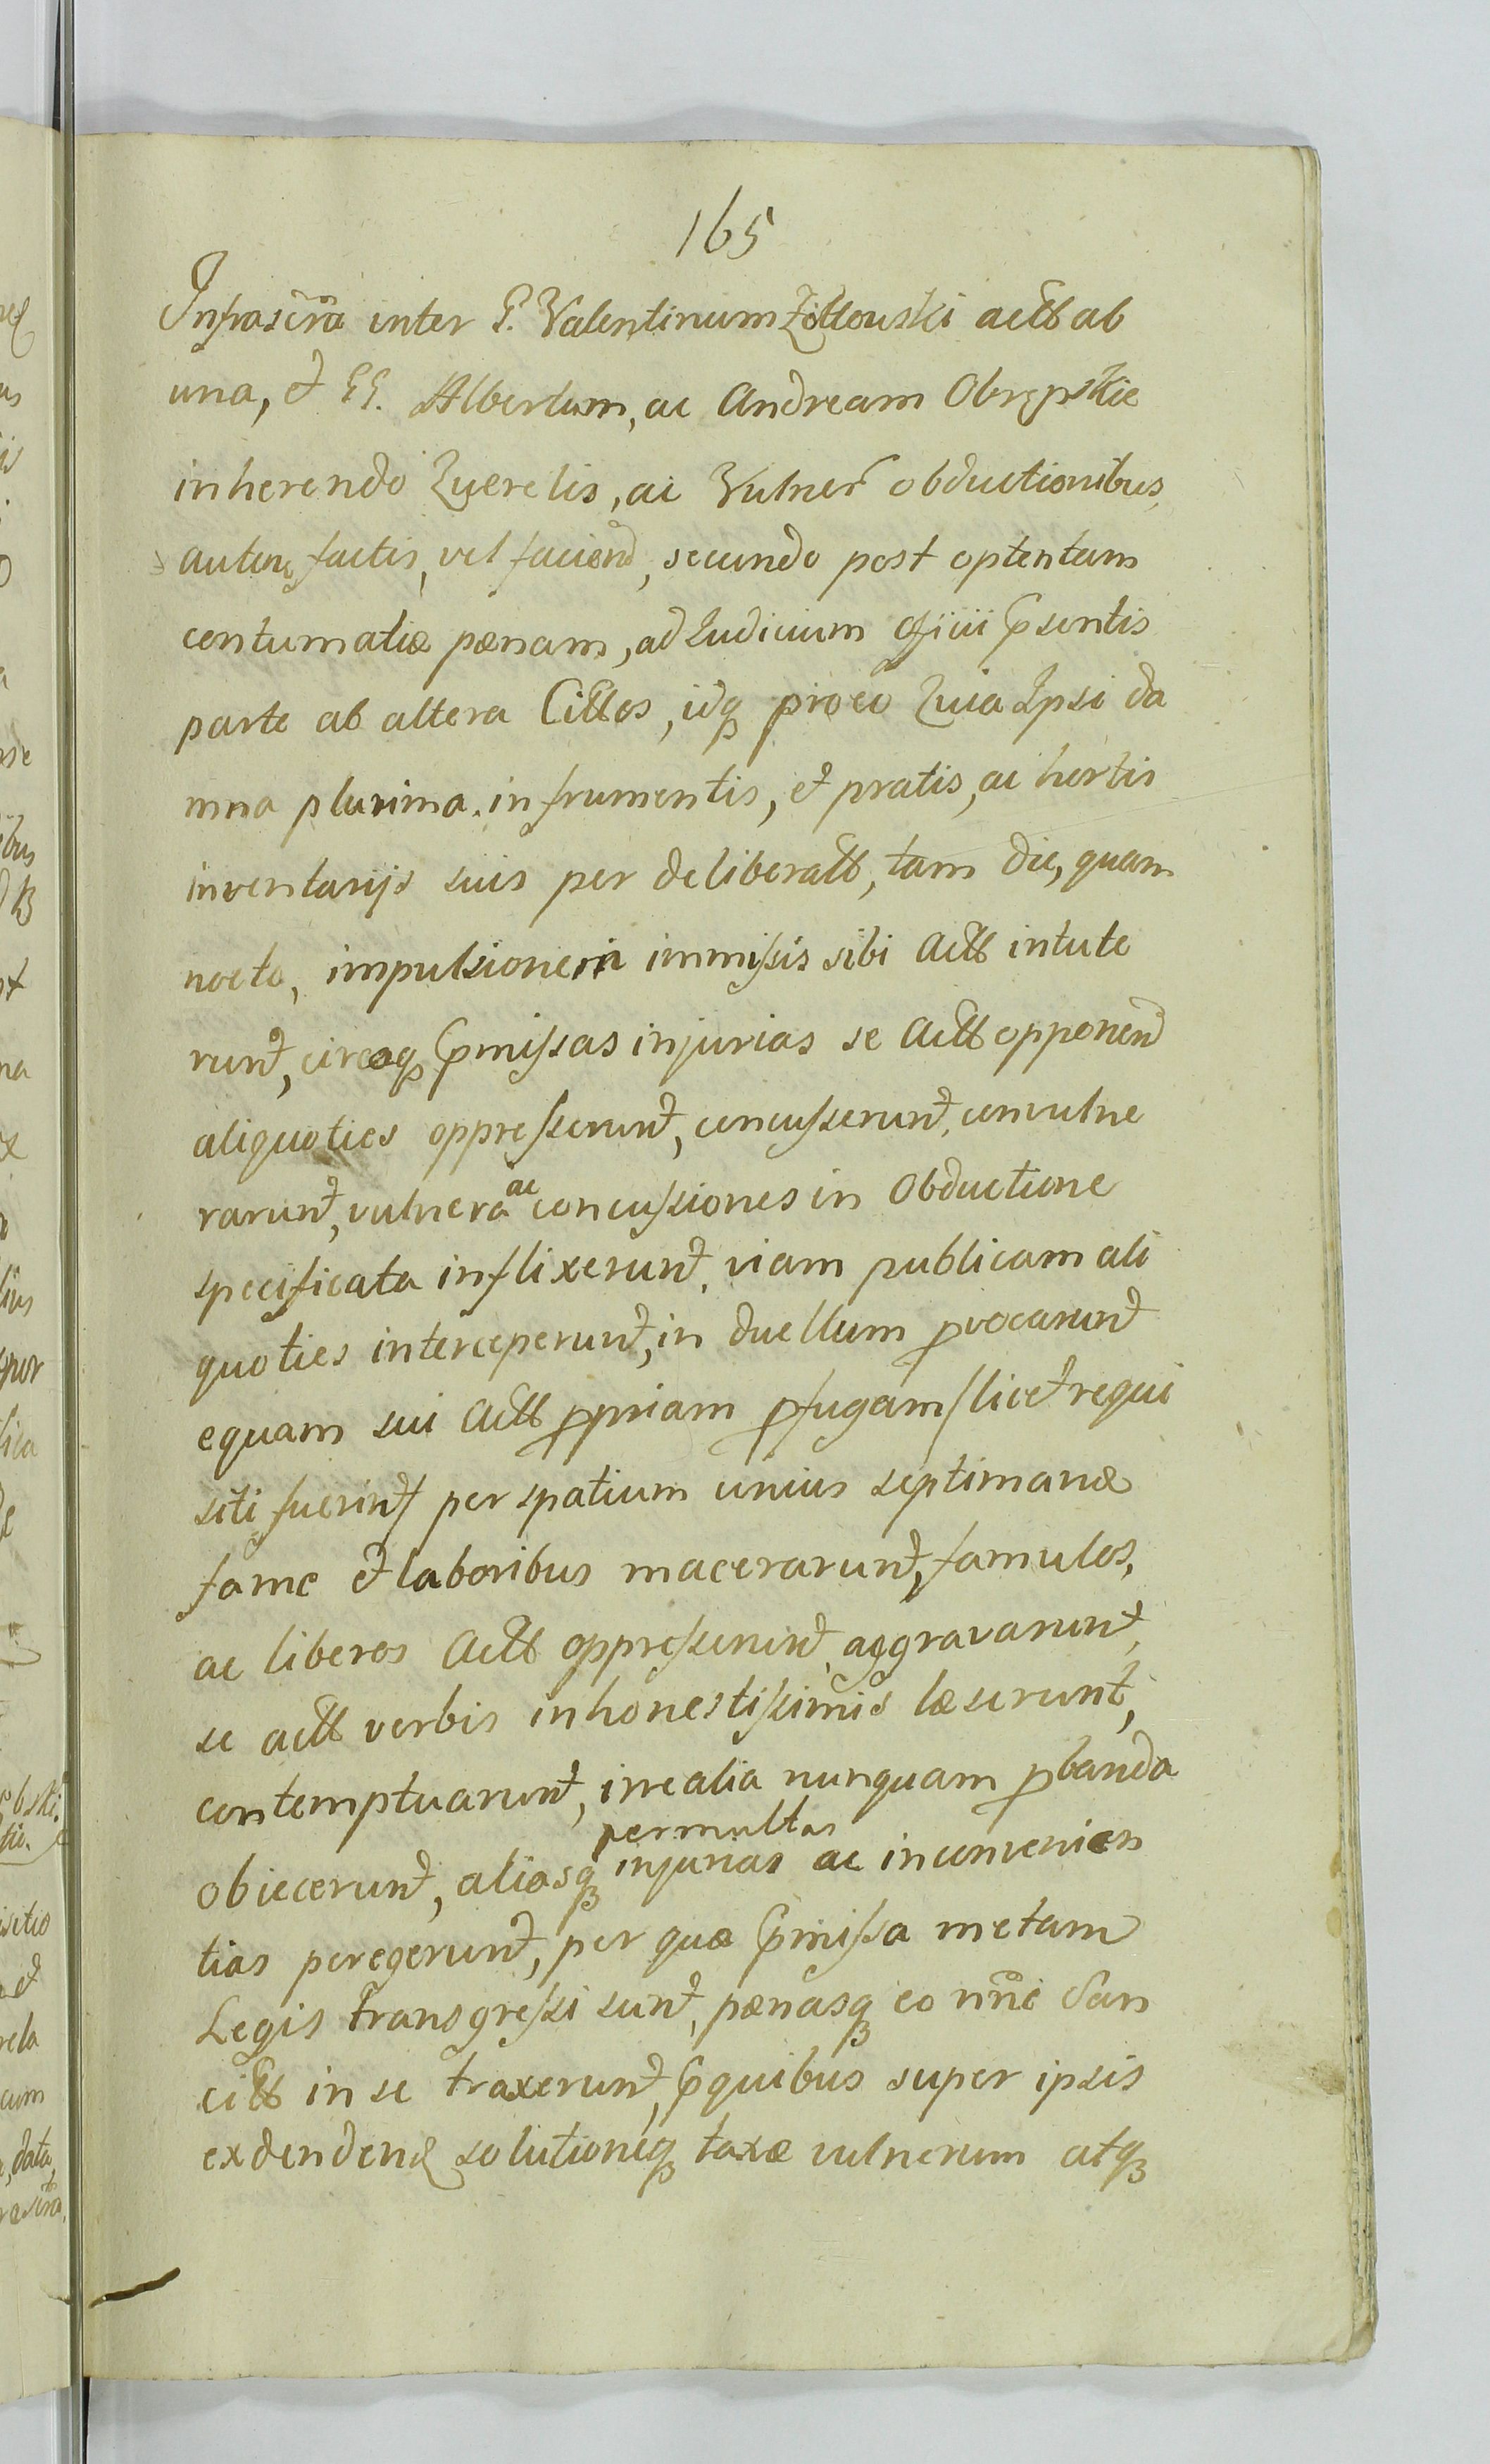 165
Infrascra inter G. Valentinum Żółtowski actt ab
una, et GG. Albertum, ac Andream Obrępskie
inherendo Querelis, ac Vulner obductionibus,
auten factis, vel faciend, secundo post optentam
contumatiæ pænam, ad Iudicium offiii Psentis
parte ab altera Cittos, idq pro eo Quia Ipsi da
mna plurima. in frumentis, et pratis, ac hortis
inventarijs suis per deliberatt, tam die, quam
nocte, impulsionem immissis sibi Actt intule
runt, circaq Pmissas injurias se Actt opponend
aliquoties oppresserunt, concusserunt, convulne
rarunt, vulnera ac concussiones in Obductione
specificata inflixerunt, viam publicam ali
quoties interceperunt, in duellum pvocarunt
equam sui Actt ppriam pfugam /licet requi
siti fuerint/ per spatium unius septimanæ
fame et laboribus macerarunt, famulos,
ac liberos Actt oppresserunt, aggravarunt,
se actt verbis inhonestissimis læserunt,
contemptuarunt, irrealia nunquam pbanda
permultas
obiecerunt, aliasq injurias ac inconvenien
tias peregerunt, per quæ Pmissa metam
Legis transgressi sunt, pænasq eo nñe San
citt in se traxerunt, P quibus super ipsis
exdendend solutioneq taxæ vulnerum atq